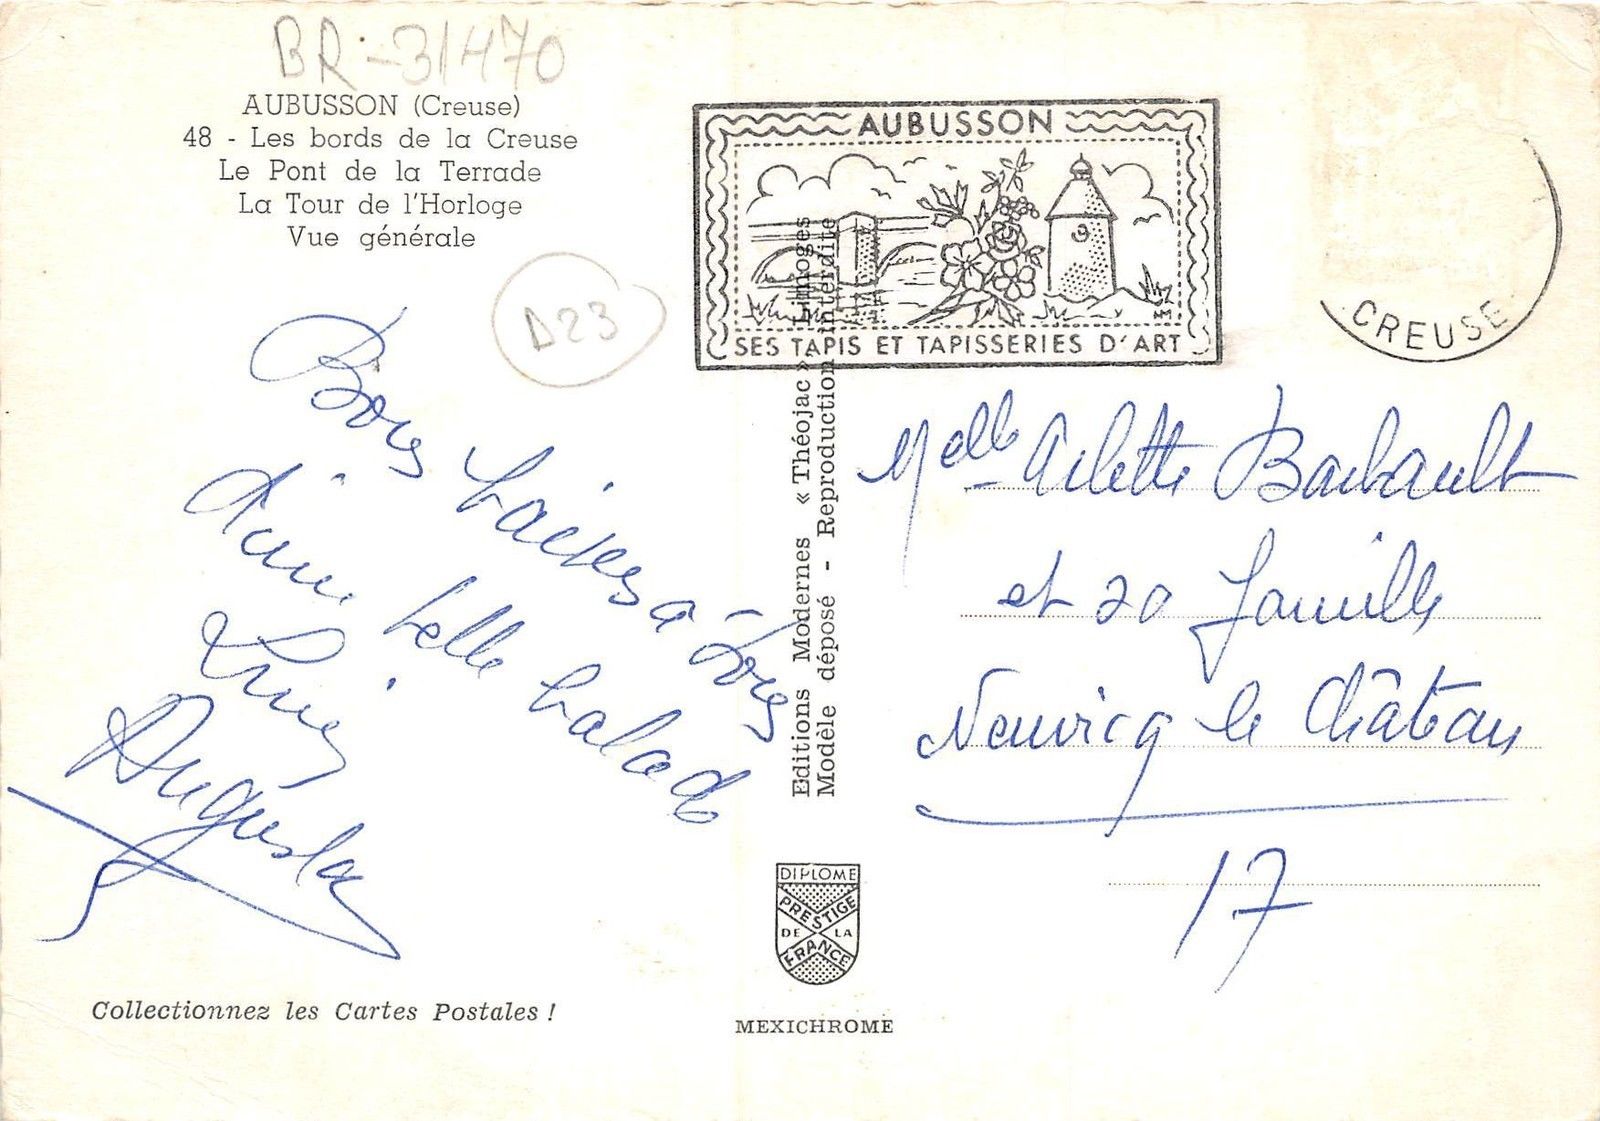 BR-31470
AUBUSSON (Creuse)
48 - Les bords de la Creuse
Le Pont de la Terrade
La Tour de l'Horloge
Vue générale
D23
Bons baisers à tous
d'une belle balade
Augusta
Collectionnez les Cartes Postales !
AUBUSSON
SES TAPIS ET TAPISSERIES D'ART
CREUSE
Editions Modernes « Théojac » Limoges
Modèle déposé - Reproduction interdite
DIPLOME
PRESTIGE
DE LA
FRANCE
MEXICHROME
Melle Arlette Barbault
et sa famille
Neuvicq le Château
17